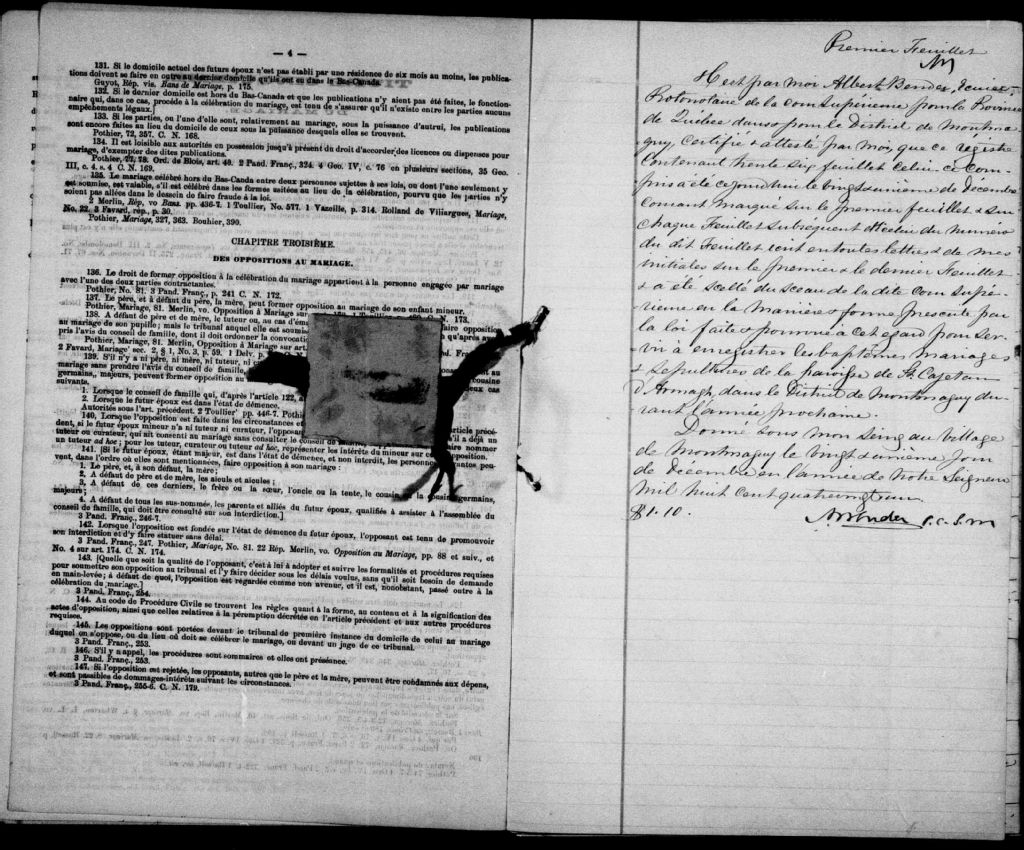 — 4 —
131. Si le domicile actuel des futurs époux n'est pas établi par une résidence de six mois au moins, les publica-
tions doivent se faire en outre au dernier domicile qu'ils ont eu dans le Bas-Canada.
Guyot, Rép. vis. Bans de Mariage, p. 175.
132. Si le dernier domicile est hors du Bas-Canada et que les publications n'y aient pas été faites, le fonction-
naire qui, dans ce cas, procède à la célébration du mariage, est tenu de s'assurer qu'il n'existe entre les parties aucuns
empêchements légaux.]
133. Si les parties, ou l'une d'elle sont, relativement au mariage, sous la puissance d'autrui, les publications
sont encore faites au lieu du domicile de ceux sous la puissance desquels elles se trouvent.
Pothier, 72, 357. C. N. 168.
134. Il est loisible aux autorités en possession jusqu'à présent du droit d'accorder des licences ou dispenses pour
mariage, d'exempter des dites publications.
Pothier, 77, 78. Ord. de Blois, art. 40. 2 Pand. Franç., 324. 4 Geo. IV, c. 76 en plusieurs sections, 35 Geo.
III, c. 4. s. 4 C. N. 169.
135. Le mariage célébré hors du Bas-Canda entre deux personnes sujettes à ses lois, ou dont l'une seulement y
est soumise, est valable, s'il est célébré dans les formes usitées au lieu de la célébration, pourvu que les parties n'y
soient pas allées dans le dessein de faire fraude à la loi.
2 Merlin, Rép, vo Bans. pp. 436-7. 1 Toullier, No. 577. 1 Vazeille, p. 314. Rolland de Villiargues, Mariage,
No. 22. 3 Favard, rép., p. 30.
Pothier, Mariage, 327, 363. Bouhier, 390.
CHAPITRE TROISIÈME.
DES OPPOSITIONS AU MARIAGE.
136. Le droit de former opposition à la célébration du mariage appartient à la personne engagée par mariage
avec l'une des deux parties contractantes.
Pothier, No. 81. 3 Pand. Franç., p. 241 C. N. 172.
137. Le père, et à défaut du père, la mère, peut former opposition au mariage de son enfant mineur.
Pothier, Mariage, 81. Merlin, vo. Opposition à Mariage sur C. N. 173.
138. A défaut de père et de mère, le tuteur, ou, au cas d'ém faire opposition
au mariage de son pupille; mais le tribunal auquel elle est soumi qu'après avoir
pris l'avis du conseil de famille, dont il doit ordonner la convocatio
Pothier, Mariage, 81. Merlin, Opposition à Mariage sur art. nd. Franç.
2 Favard, Mariage' sec. 2, § 1, No. 3, p. 59. 1 Delv. p.
139. S'il n'y a ni père, ni mère, ni tuteur, ni cousine
mariage sans prendre l'avis du conseil de famille. eux cas
germains, majeurs, peuvent former opposition au
suivants.
1. Lorsque le conseil de famille qui, d'après l'article 122, a
2. Lorsque le futur époux est dans l'état de démence.
Autorités sous l'art. précédent. 2 Toullier' pp. 446-7. Pothi
140. Lorsque l'opposition est faite dans les circonstances et article précé-
dent, si le futur époux mineur n'a ni tuteur ni curateur, l'oppos s'il a déjà un
tuteur ou curateur, qui ait consenti au mariage sans consulter le conseil de faire nommer
un tuteur ad hoc; pour les tuteur, curateur ou tuteur ad hoc, représenter les intérêts du mineur sur cette opposition.
141. [Si le futur époux, étant majeur, est dans l'état de démence, et non interdit, les personnes suivantes peu-
vent, dans l'ordre où elles sont mentionnées, faire opposition à son mariage :
1. Le père, et, à son défaut, la mère;
2. A défaut de père et de mère, les aïeuls et aïeules;
3, A défaut de ces derniers, le frère ou la sœur, l'oncle ou la tente, le cousin ou la cousine germains,
majeurs;
4. A défaut de tous les sus-nommés, les parents et alliés du futur époux, qualifiés à assister à l'assemblée du
conseil de famille, qui doit être consulté sur son interdiction.]
3 Pand. Franç., 246-7.
142. Lorsque l'opposition est fondée sur l'état de démence du futur époux, l'opposant est tenu de promouvoir
son interdiction et d'y faire statuer sans délai.
3 Pand. Franç., 247. Pothier, Mariage, No. 81. 22 Rép. Merlin, vo. Opposition au Mariage, pp. 88 et suiv., et
No. 4 sur art. 174. C. N. 174.
143. [Quelle que soit la qualité de l'opposant, c'est à lui à adopter et suivre les formalités et procédures requises
pour soumettre son opposition au tribunal et l'y faire décider sous les délais voulus, sans qu'il soit besoin de demande
en main-levée; à défaut de quoi, l'opposition est regardée comme non avenue, et il est, nonobstant, passé outre à la
célébration du mariage.]
2 Pand. Franç., 254.
144. Au code de Procédure Civile se trouvent les règles quant à la forme, au contenu et à la signification des
actes d'opposition, ainsi que celles relatives à la péremption décrétée en l'article précédent et aux autres procédures
requises.
145. Les oppositions sont portées devant le tribunal de première instance du domicile de celui au mariage
duquel on s'oppose, ou du lieu où doit se célébrer le mariage, ou devant un juge de ce tribunal.
3 Pand. Franç., 253.
146. S'il y a appel, les procédures sont sommaires et elles ont préséance.
3 Pand. Franç., 253.
147. Si l'opposition est rejetée, les opposants, autres que le père et la mère, peuvent être condamnés aux dépens,
et sont passibles de dommages-intérêts suivant les circonstances.
3 Pand. Franç., 255-6. C. N. 179.
Premier Feuillet
Il est par moi Albert Bender, Ecuier
Protonotaire de la Cour Supérieure pour la Province
de Québec dans & pour le District de Montma
guy, Certifié & attesté par moi, que ce registre
Contenant trente six feuillets celui-ci com-
pris a été ce jourd'hui le vingt & unieme de decembre
Courant Marqué sur le premier feuillet & sur
chaque Feuillet subséquent du numéro
du dit Feuillet écrit en toutes lettres & de mes
initiales sur le premier & le dernier Feuillet
& a été scellé du sceau de la dite Cour Supé-
rieure en la manière & forme prescrite par
la loi faite & pourvue à cet égard pour ser-
vir à enregistrer les baptêmes mariages
& Sepultures de la paroisse de St. Cajetan
d'Armagh, dans le District de Montmagny du-
rant l'année prochaine.
Donné sous mon Seing au Village
de Montmagny le vingt & unième jour
de decembre en l'année de notre Seigneur
Mil huit Cent quatrevingt
$1.10. ABender P.C.S.M